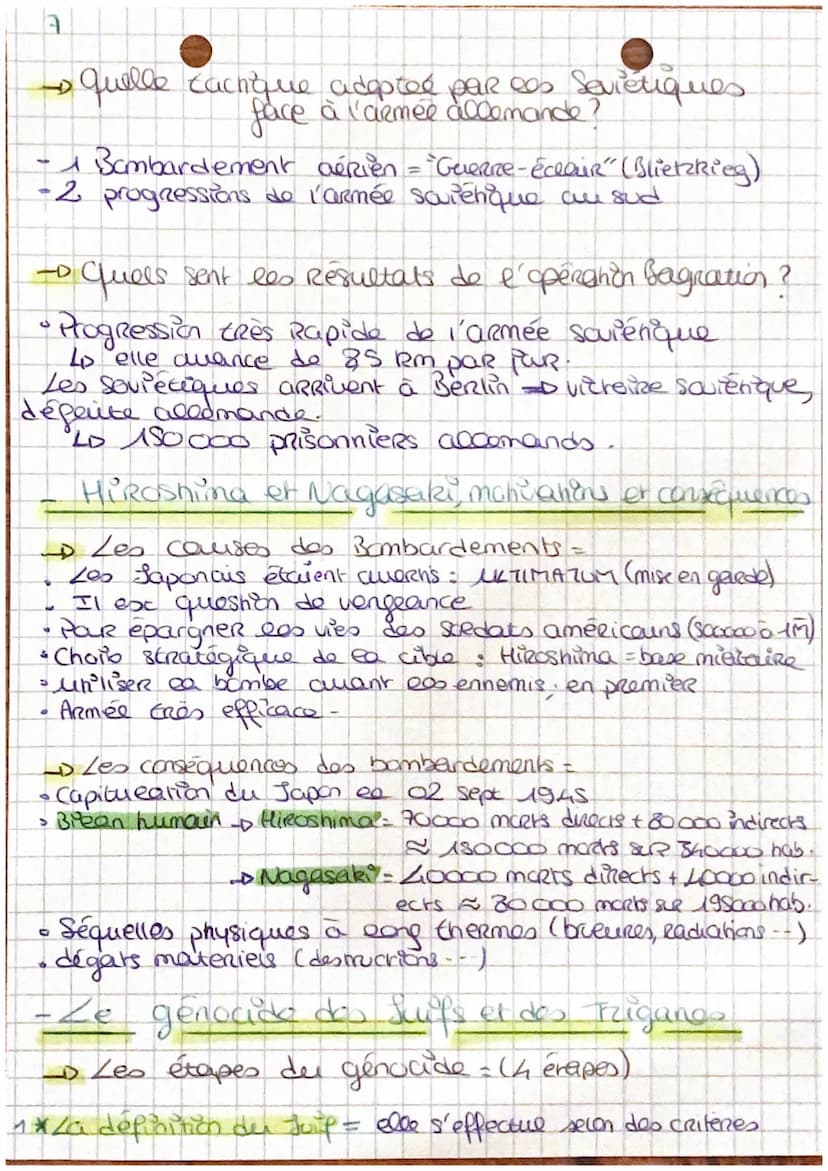 7
→ Quelle tactique adoptée par les Soviétiques
face à l'armée allemande ?
- 1 Bombardement aérien = "Guerre-éclair" (Blietzkrieg)
- 2 progressions de l'armée soviétique au sud
→ Quels sont les Résultats de l'opération Bagration ?
• Progression très Rapide de l'armée soviétique
↳ elle avance de 35 km par jour.
Les Soviétiques arrivent à Berlin ⇒ victoire soviétique,
défaite allemande.
↳ 150 000 prisonniers allemands.
- Hiroshima et Nagasaki, motivations et conséquences
→ Les causes des Bombardements =
• Les Japonais étaient avertis : ULTIMATUM (mise en garde)
• Il est question de vengeance
• Pour épargner les vies des soldats américains (500000 à 1M)
• Choix stratégique de la cible : Hiroshima = base militaire
• Utiliser la bombe avant les ennemis ; en premier
• Armée très efficace -
→ Les conséquences des bombardements =
• Capitulation du Japon le 02 sept 1945
• Bilan humain → Hiroshima = 70000 morts directs + 80 000 indirects
≈ 150000 morts sur 340000 hab.
→ Nagasaki = 40000 morts directs + 40000 indir-
ects ≈ 80 000 morts sur 195000 hab.
• Séquelles physiques à long thermes (brulures, radiations --)
• dégats materiels (destructions ---)
- Le génocide des Juifs et des Tziganes
→ Les étapes du génocide = (4 étapes)
1 * La définition du Juif = elle s'effectue selon des critères